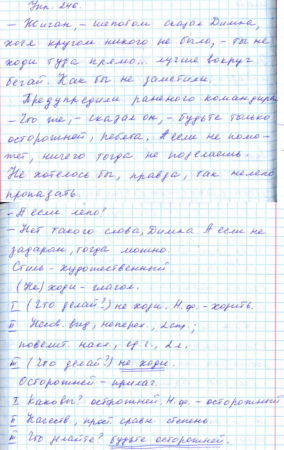 Упр. 240.
– Жиган, – шепотом сказал Димка,
хотя кругом никого не было, – ты не
ходи туда прямо... лучше вокруг
бегай. Как бы не заметили.
Предупредили раненого командира.
– Что же, – сказал он, – будьте только
осторожней, ребята. А если не помо-
жет, ничего тогда не поделаешь.
Не хотелось бы, правда, так нелепо
пропадать.
– А если лепо?
– Нет такого слова, Димка. А если не
задаром, тогда можно.
Стиль – художественный
(Не) ходи – глагол.
I (Что делай?) не ходи. Н.ф. – ходить.
II Несов. вид, неперех., 2 спр.;
повелит. накл., ед.ч., 2 л.
III (Что делай?) не ходи.
Осторожней – прилаг.
I Каковы? осторожней. Н.ф. – осторожный
II Качеств., прост. сравн. степень.
III Что делайте? будьте осторожней.